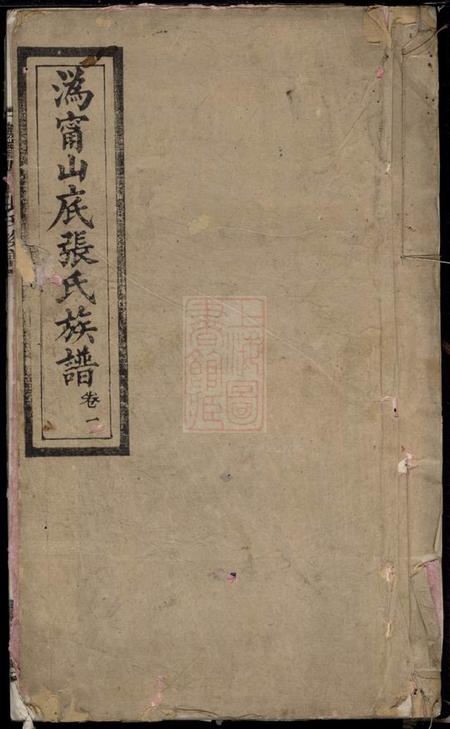 溈甯山底張氏族譜 卷一
上海圖
書館藏